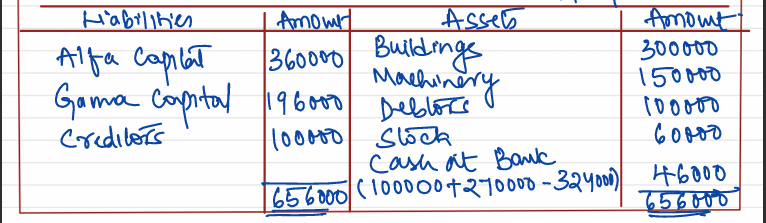 Liabilities Amount Assets Amount
Alfa Capital 360000 Buildings 300000
Machinery 150000
Gama Capital 196000 Debtors 100000
Creditors 100000 Stock 60000
Cash at Bank
(100000+270000-324000) 46000
656000 656000